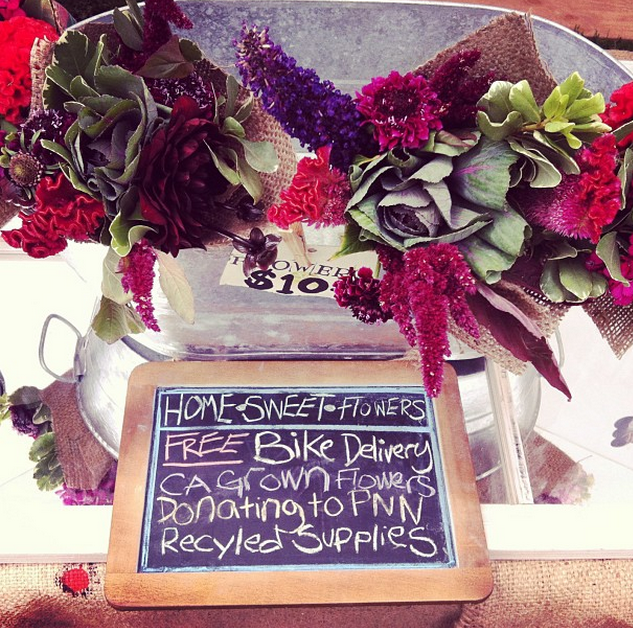 FLOWERS
$10
HOME•SWEET•FLOWERS
FREE Bike Delivery
CA Grown Flowers
Donating to PNN
Recyled Supplies